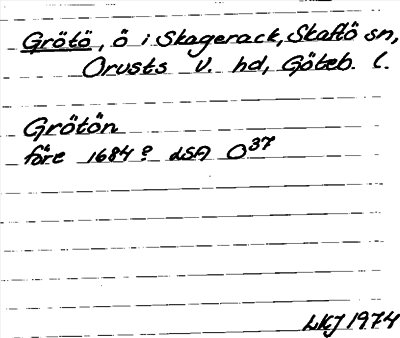 Grötö, ö i Skagerack, Skaftö sn,
Orusts V. hd, Göteb. l.
Grötön
före 1684? LSA O37
LKJ 1974